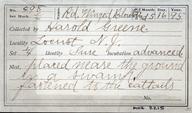 No. 498 Red Winged Blackbird
Collected by Harold Greene
Locust N.J.
Set 4 Identity Sure Incubation advanced
Nest placed near the ground
in a swamp
fastened to the cattails